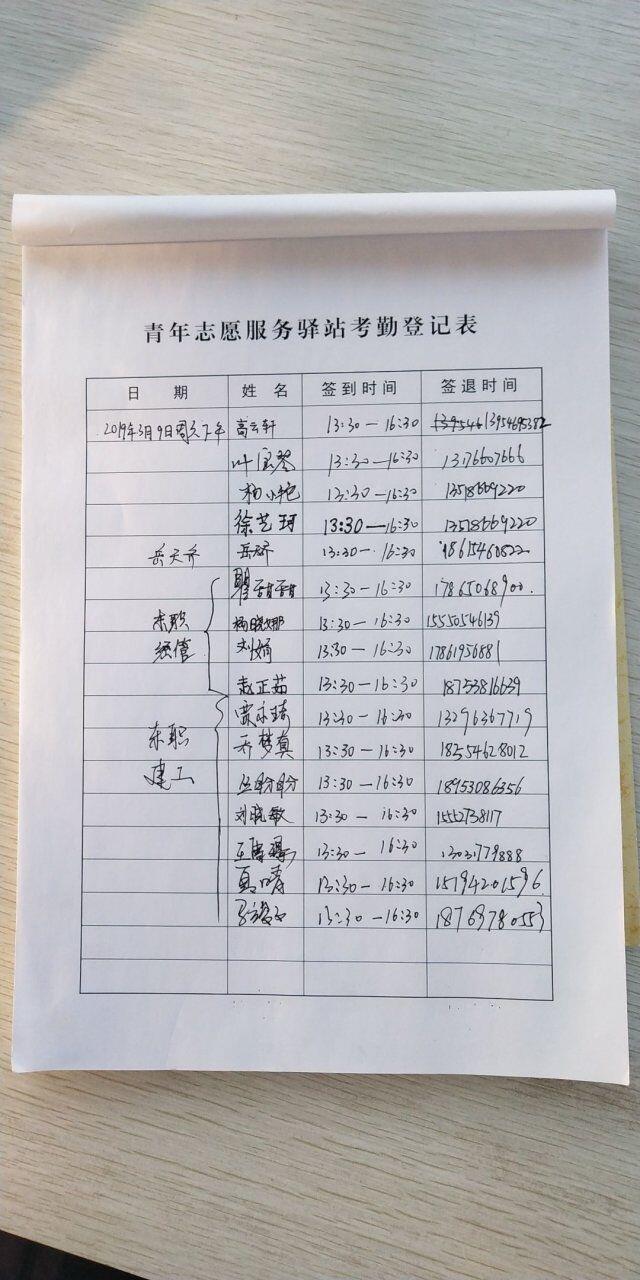 青年志愿服务驿站考勤登记表
日 期 姓 名 签到时间 签退时间
2019年3月9日周六下午 高云轩 13:30—16:30 13954695382
叶宝琴 13:30—16:30 13176607666
杨小艳 13:30—16:30 13518669220
徐艺珂 13:30—16:30 13518669220
岳天齐 13:30—16:30 18615460822
翟甜甜 13:30—16:30 17865068900
东职 杨晓娜 13:30—16:30 15550546139
经信 刘娟 13:30—16:30 17861956881
赵正茹 13:30—16:30 18753816639
13:30—16:30 13296367719
东职 乔梦真 13:30—16:30 18254628012
建工 13:30—16:30 18953086356
刘晓敏 13:30—16:30 15552738117
13:30—16:30 13031779888
夏晴 13:30—16:30 15194201596
13:30—16:30 18769780553